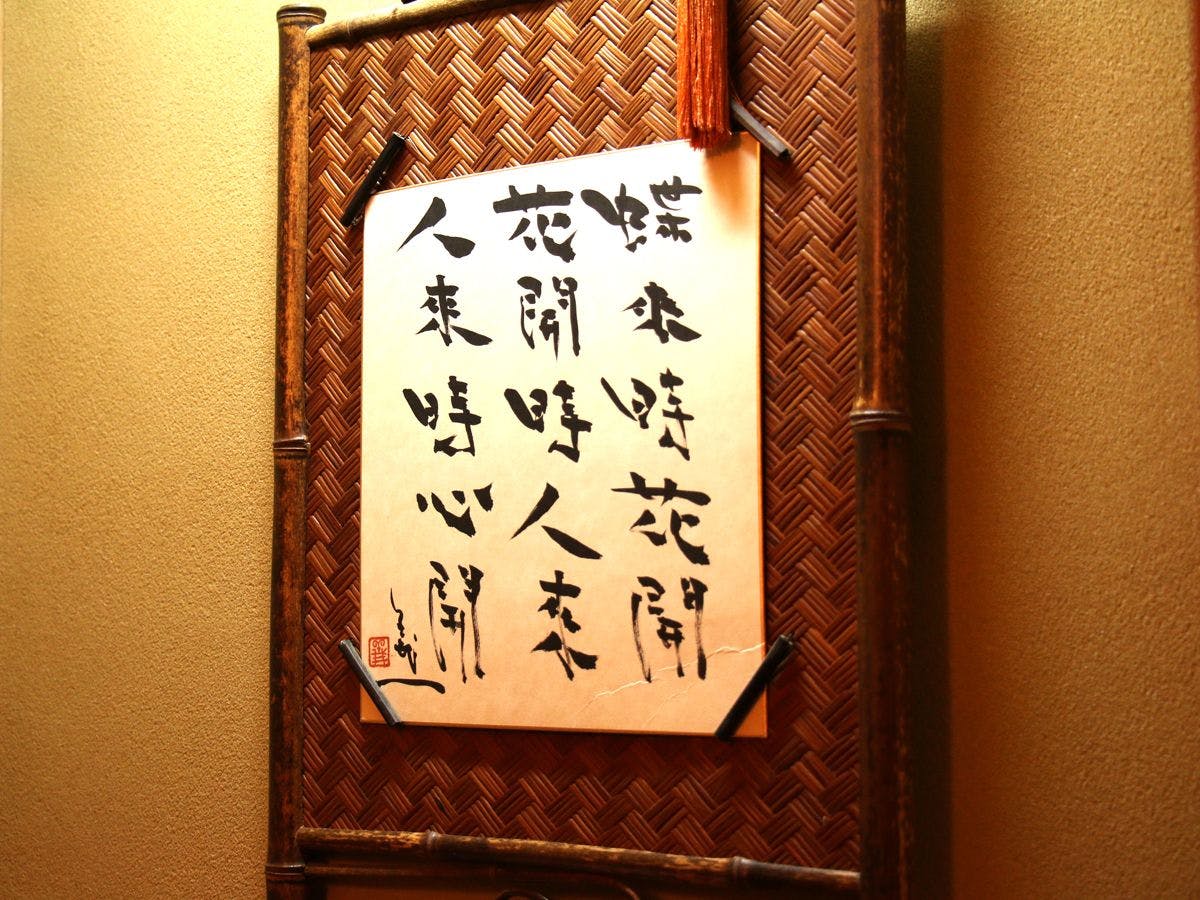 蝶來時花開
花開時人來
人來時心開